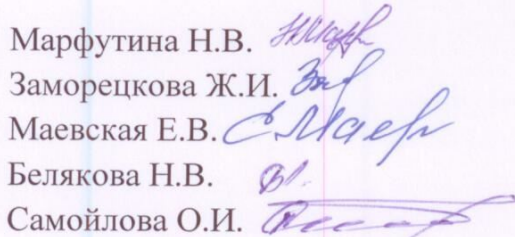 Марфутина Н.В.
Заморецкова Ж.И.
Маевская Е.В.
Белякова Н.В.
Самойлова О.И.